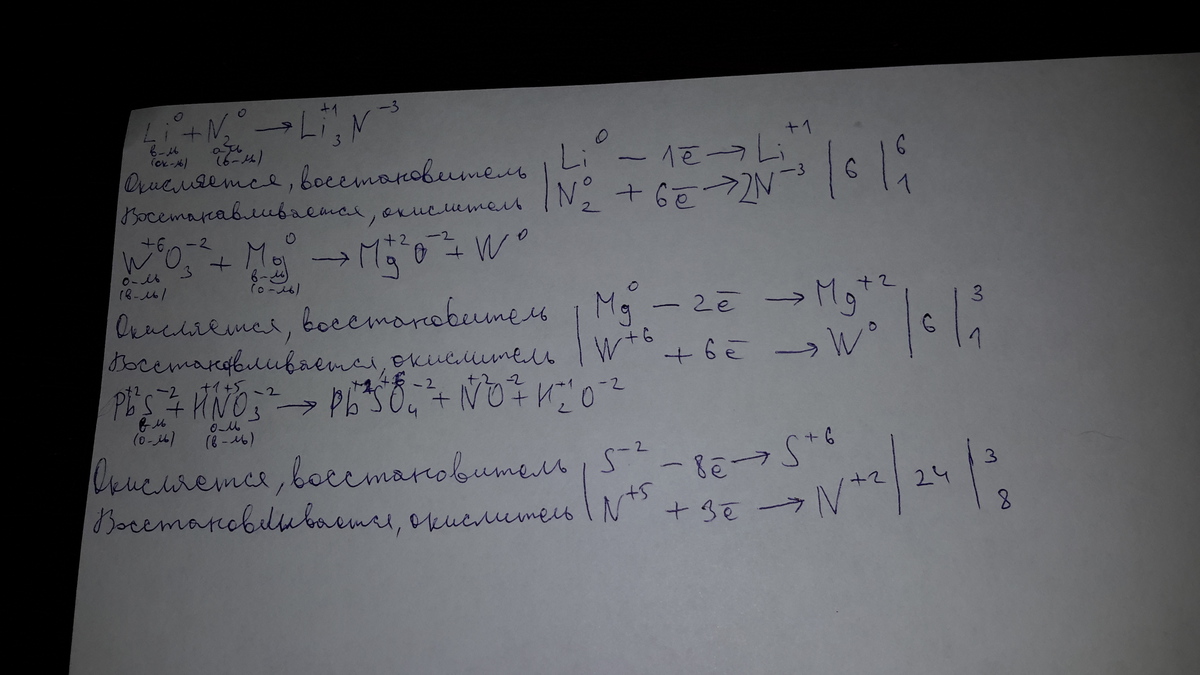 Li⁰ + N₂⁰ → Li₃⁺¹N⁻³
в-ль
(ок-ль) (в-ль)
Окисляется, восстановитель | Li⁰ − 1ē → Li⁺¹ | 6 | 6
Восстанавливается, окислитель | N₂⁰ + 6ē → 2N⁻³ | 6 | 1
W⁺⁶O₃⁻² + Mg⁰ → Mg⁺²O⁻² + W⁰
о-ль в-ль
(в-ль) (о-ль)
Окисляется, восстановитель | Mg⁰ − 2ē → Mg⁺² | 6 | 3
Восстанавливается, окислитель | W⁺⁶ + 6ē → W⁰ | 6 | 1
Pb⁺²S⁻² + H⁺¹N⁺⁵O₃⁻² → Pb⁺²S⁺⁶O₄⁻² + N⁺²O⁻² + H₂⁺¹O⁻²
в-ль о-ль
(о-ль) (в-ль)
Окисляется, восстановитель | S⁻² − 8ē → S⁺⁶ | 24 | 3
Восстанавливается, окислитель | N⁺⁵ + 3ē → N⁺² | 24 | 8